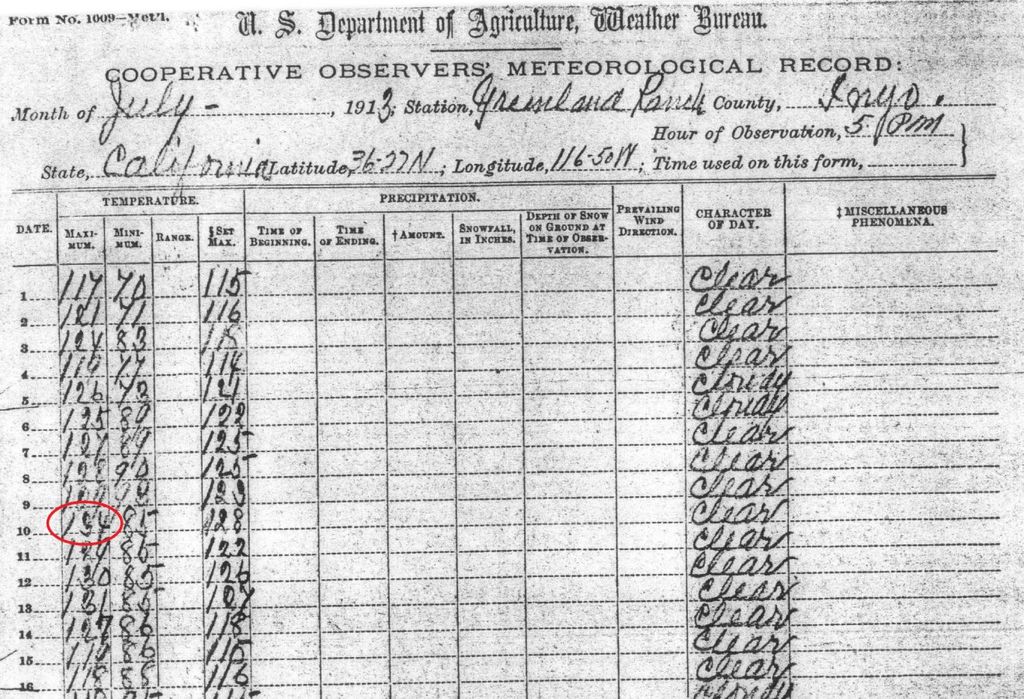 Form No. 1009—Met'l.
U. S. Department of Agriculture, Weather Bureau.
COOPERATIVE OBSERVERS' METEOROLOGICAL RECORD:
Month of July - , 1913; Station, Greenland Ranch County, Inyo.
Hour of Observation, 5 PM
State, California Latitude, 36-27N ; Longitude, 116-50W ; Time used on this form,
TEMPERATURE. PRECIPITATION.
DATE. MAXIMUM. MINIMUM. RANGE. §SET MAX. TIME OF BEGINNING. TIME OF ENDING. †AMOUNT. SNOWFALL, IN INCHES. DEPTH OF SNOW ON GROUND AT TIME OF OBSERVATION. PREVAILING WIND DIRECTION. CHARACTER OF DAY. ‡MISCELLANEOUS PHENOMENA.
1 117 70 115 Clear
2 121 71 116 Clear
3 124 83 Clear
4 77 114 Clear
5 126 73 121 Cloudy
6 125 89 122 Cloudy
7 127 89 125 Clear
8 128 90 125 Clear
9 123 Clear
10 134 85 128 Clear
11 129 86 122 Clear
12 130 85 126 Clear
13 131 85 127 Clear
14 127 86 118 Clear
15 115 Clear
16 118 88 116 Clear
Cloudy